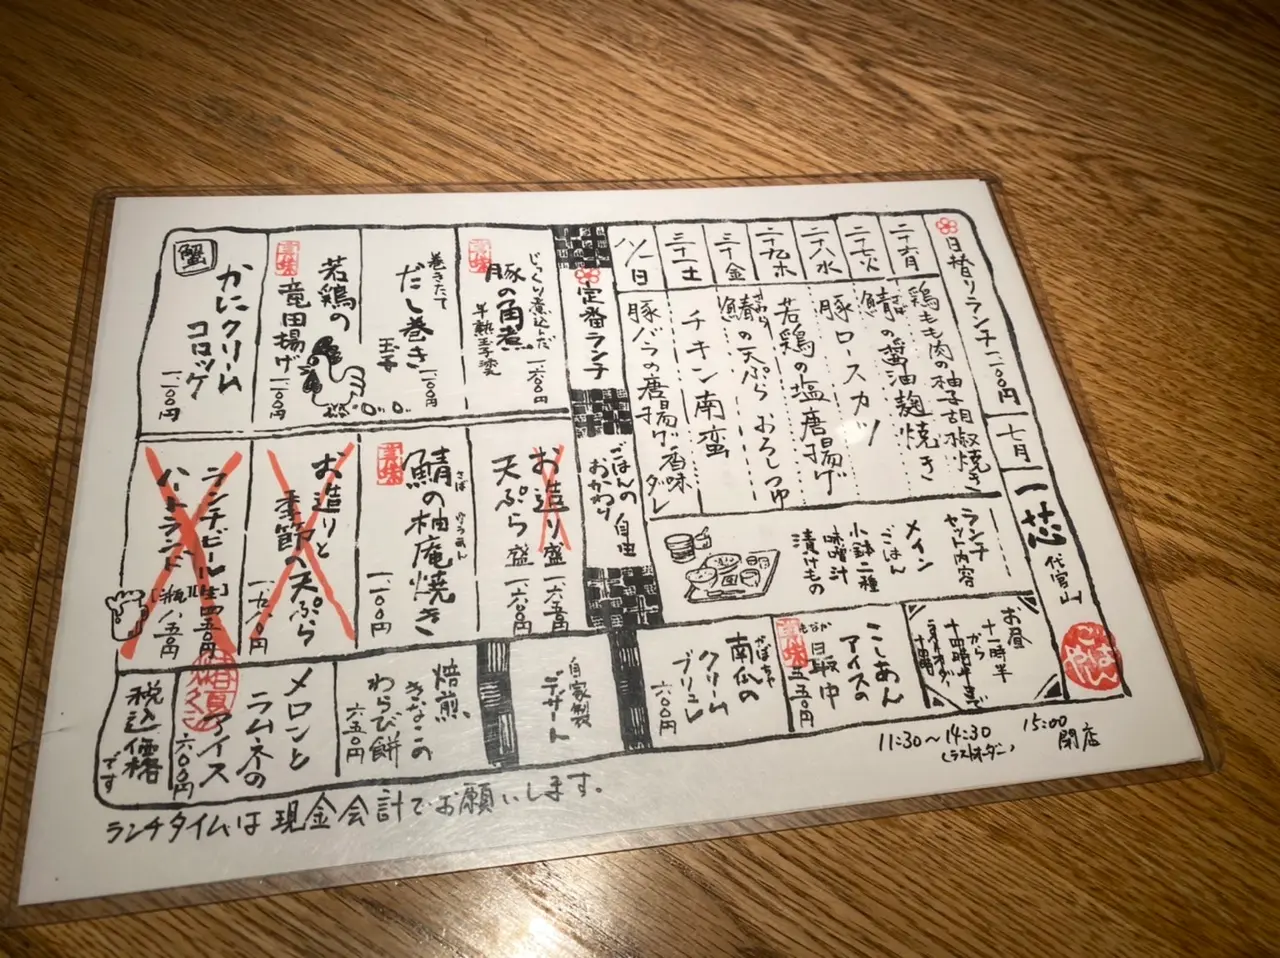 日替りランチ 一、一〇〇円
七月
一芯
代官山
ごはんや
二十六月
鶏もも肉の柚子胡椒焼き
二十七火
鯖の醤油麹焼き
さば
二十八水
豚ロースカツ
二十九木
若鶏の塩唐揚げ
三十金
鰆の天ぷら おろしつゆ
さわら
三十一土
チキン南蛮
八/一日
豚バラの唐揚げ 香味ダレ
ランチセット内容
メイン
ごはん
小鉢二種
味噌汁
漬けもの
お昼
十一時半
から
十四時半まで
定番ランチ
ごはんの
おかわり
自由
じっくり煮込んだ
豚の角煮
半熟玉子添え
一、六〇〇円
巻きたて
だし巻き
玉子
一、一〇〇円
若鶏の
竜田揚げ
一、一〇〇円
蟹
かにクリーム
コロッケ
一、一〇〇円
お造り盛 一、六五〇円
天ぷら盛 一、六〇〇円
美味
鯖の柚庵焼き
さば
ゆうあん
一、一〇〇円
お造りと
季節の天ぷら
ランチビール[生]四五〇円
ハートランド[瓶]八五〇円
こしあん
アイスの
最中
もなか
五五〇円
かぼちゃ
南瓜の
クリーム
ブリュレ
六〇〇円
自家製
デザート
焙煎
きなこの
わらび餅
六五〇円
メロンと
ラムネの
アイス
六〇〇円
税込価格
です
11:30〜14:30
(ラストオーダー)
15:00
閉店
ランチタイムは現金会計でお願いします。